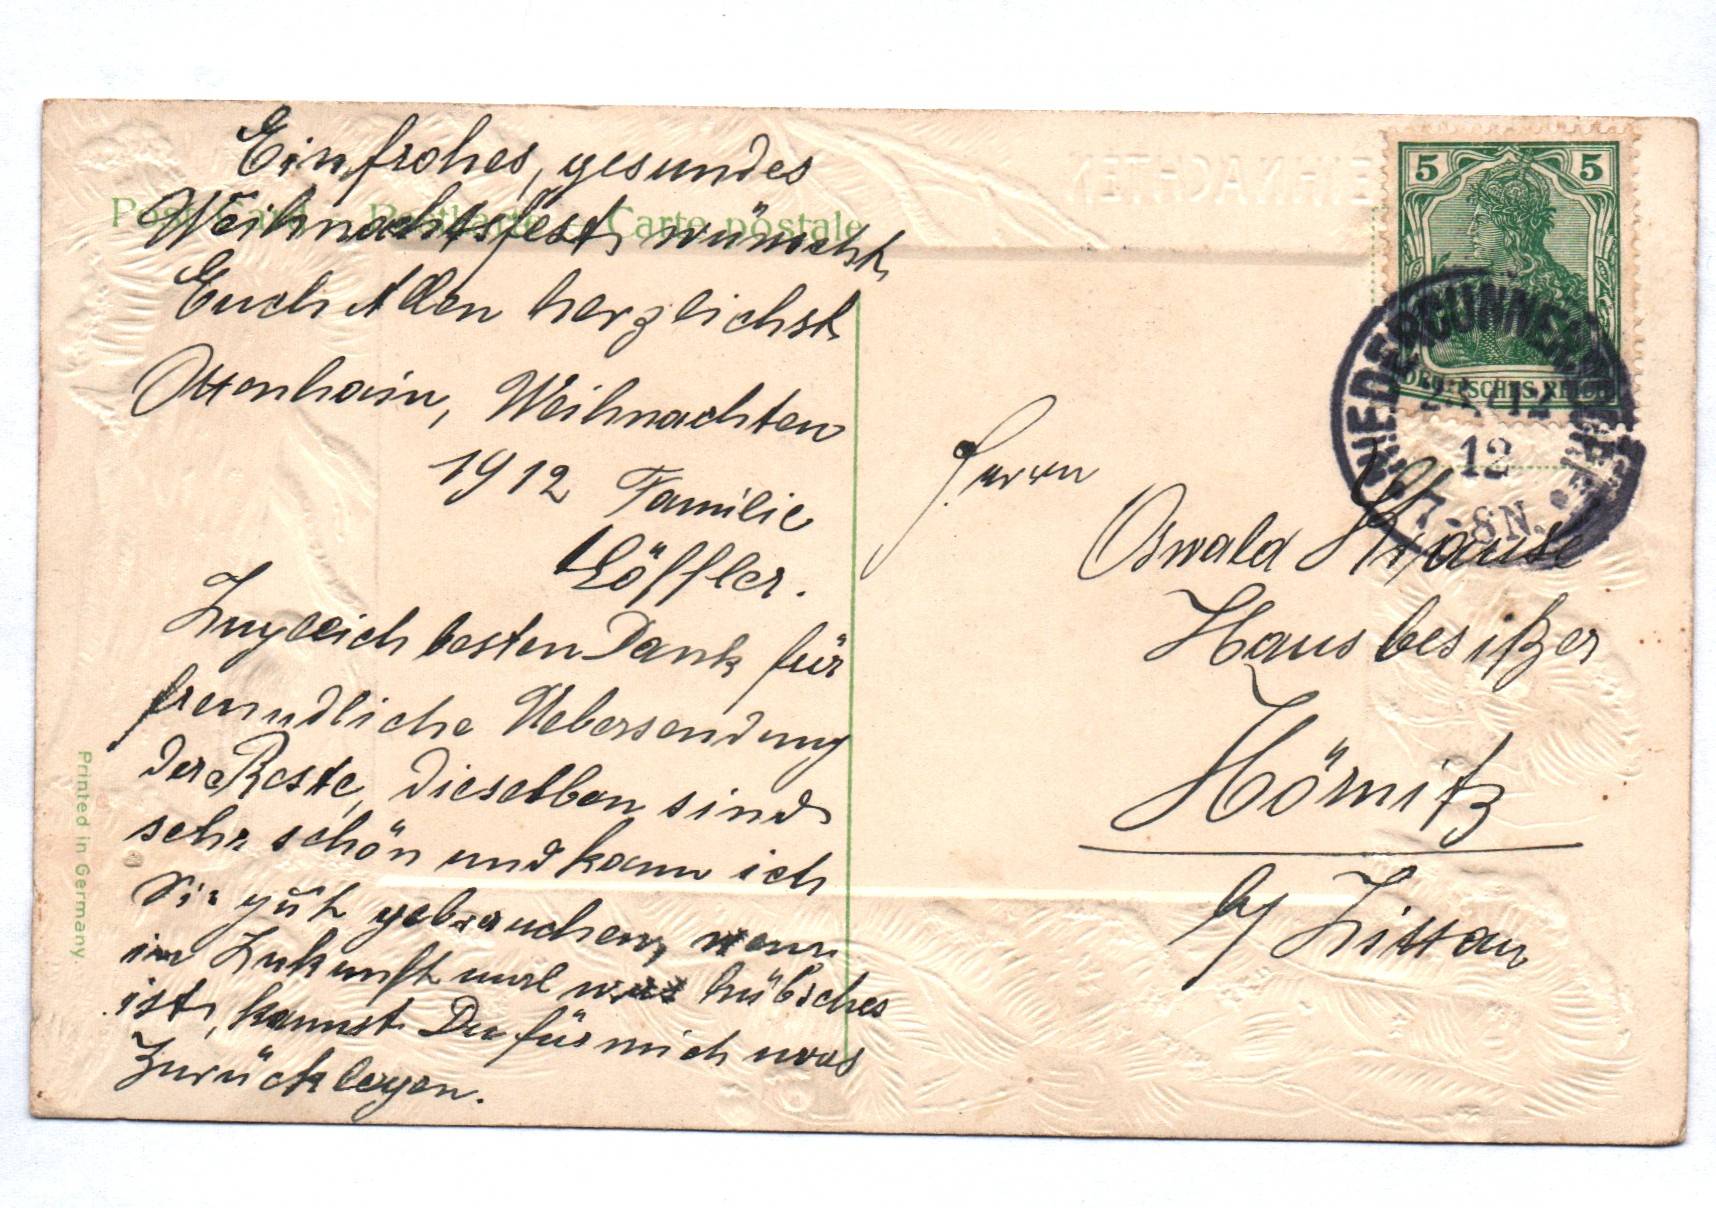 Ein frohes, gesundes
Weihnachtsfest, wünscht
Euch Allen herzlichst
Ottenhain, Weihnachten
1912 Familie
Löffler.
Zugleich besten Dank für
freundliche Uebersendung
der Reste, dieselben sind
sehr schön und kann ich
sie gut gebrauchen, wenn
in Zukunft mal was hübsches
ist, kannst Du für mich was
zurücklegen.
Post Card Postkarte Carte postale
Printed in Germany
EIHNACHTEN
5 5
DEUTSCHES REICH
12
7-8N.
Herrn
Oswald Krause
Hausbesitzer
Hörnitz
b/ Zittau